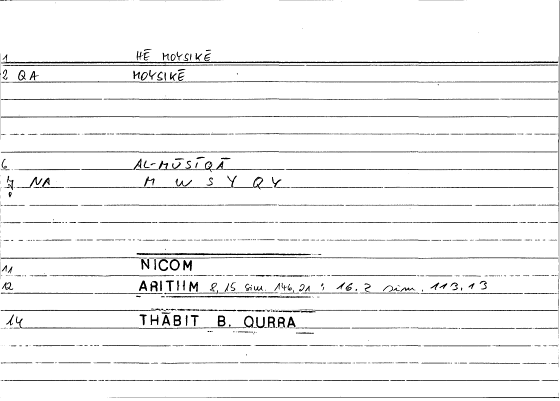 1 HĒ MOYSIKĒ
2 QA MOYSIKĒ
6 AL-MŪSĪQĀ
NA M W S Y Q Y
11 NICOM
12 ARITIIM 8, 15 sim. 146, 21 ; 16. 2 sim. 113, 13
14 THĀBIT B. QURRA